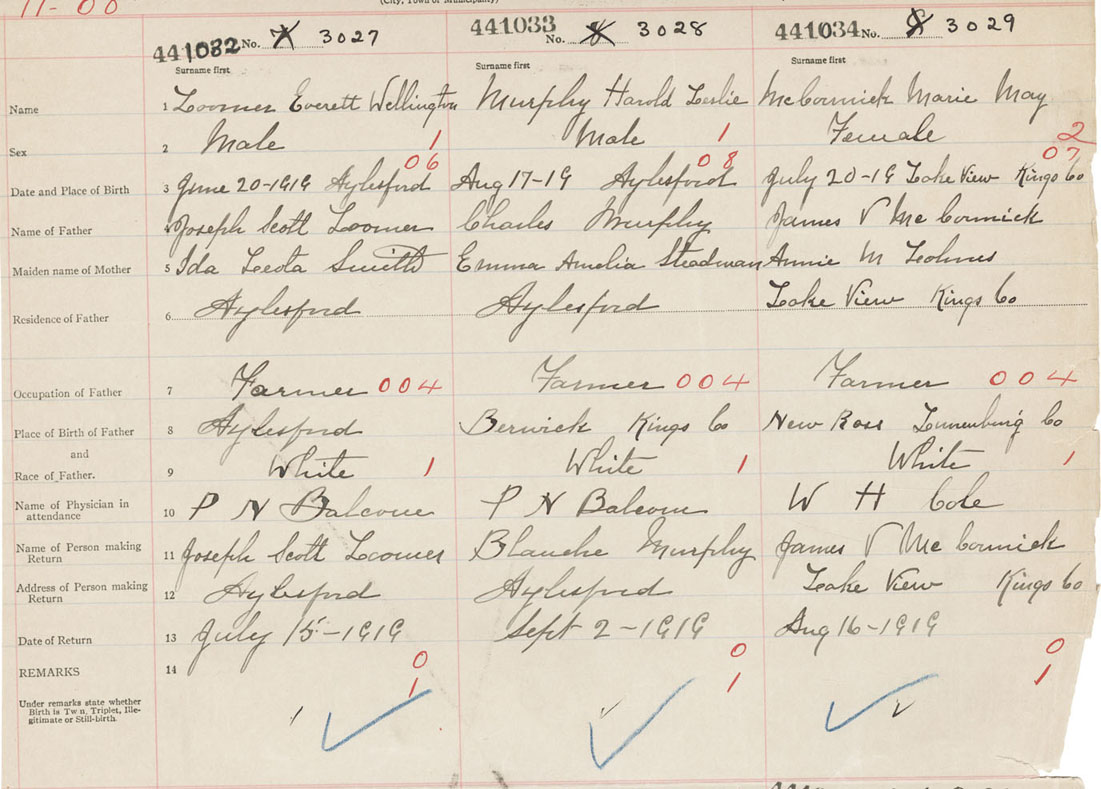 11-00
(City, Town or Municipality)
441032 No. 7 3027 441033 No. 8 3028 441034 No. 9 3029
Surname first Surname first Surname first
Name 1 Loomer Everett Wellington Murphy Harold Leslie McCormick Marie May
Sex 2 Male 1 Male 1 Female 2
06 08 07
Date and Place of Birth 3 June 20-1919 Aylesford Aug 17-19 Aylesford July 20-19 Lake View Kings Co
Name of Father 4 Joseph Scott Loomer Charles Murphy James V McCormick
Maiden name of Mother 5 Ida Leota Smith Emma Amelia Steadman Annie M
Residence of Father 6 Aylesford Aylesford Lake View Kings Co
Occupation of Father 7 Farmer 004 Farmer 004 Farmer 004
Place of Birth of Father 8 Aylesford Berwick Kings Co New Ross Lunenburg Co
and
Race of Father. 9 White 1 White 1 White 1
Name of Physician in
attendance 10 P N Balcom P N Balcom W H Cole
Name of Person making
Return 11 Joseph Scott Loomer Blanche Murphy James V McCormick
Address of Person making
Return 12 Aylesford Aylesford Lake View Kings Co
Date of Return 13 July 15-1919 Sept 2-1919 Aug 16-1919
0 0 0
REMARKS 14
1 1 1
Under remarks state whether
Birth is Twin, Triplet, Ille-
gitimate or Still-birth.